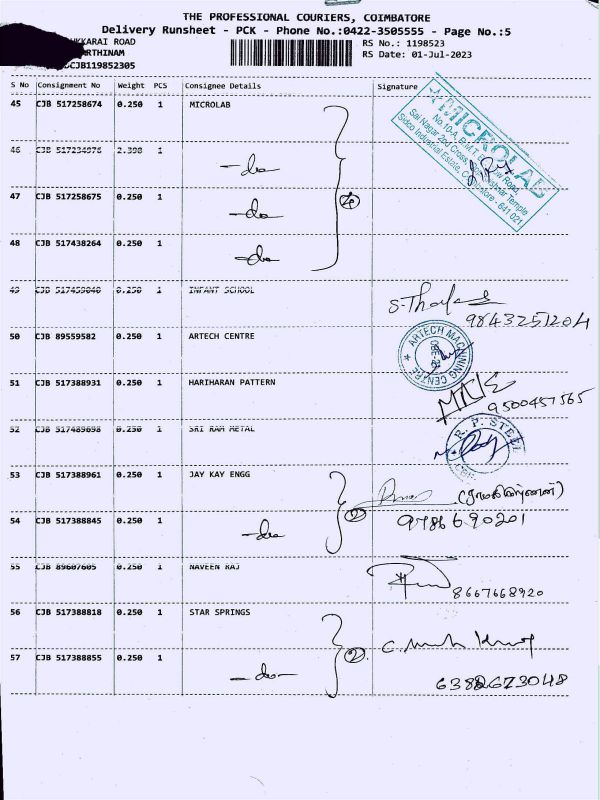 THE PROFESSIONAL COURIERS, COIMBATORE
Delivery Runsheet - PCK - Phone No.:0422-3505555 - Page No.:5
KKARAI ROAD
RS No.: 1198523
ARTHINAM
RS Date: 01-Jul-2023
CJB119852305
S No Consignment No Weight PCS Consignee Details Signature
45 CJB 517258674 0.250 1 MICROLAB
MICROLAB
No.10-A, B.M.T.
Sai Nagar 2nd Cross
Sidco Industrial Estate, Coimbatore - 641 021
46 CJB 517234976 2.398 1 -do-
47 CJB 517258675 0.250 1 -do-
4
48 CJB 517438264 0.250 1 -do-
49 CJB 0.250 1 INFANT SCHOOL
9843251204
50 CJB 89559582 0.250 1 ARTECH CENTRE
ARTECH MACHINING CENTRE
51 CJB 517388931 0.250 1 HARIHARAN PATTERN
9500457565
52 CJB 517489698 0.250 1 SRI RAM METAL
R. P. STEEL
53 CJB 517388961 0.250 1 JAY KAY ENGG
2
54 CJB 517388845 0.250 1 -do-
9786690201
55 CJB 89607605 0.250 1 NAVEEN RAJ
8667668920
56 CJB 517388818 0.250 1 STAR SPRINGS
2
57 CJB 517388855 0.250 1 -do-